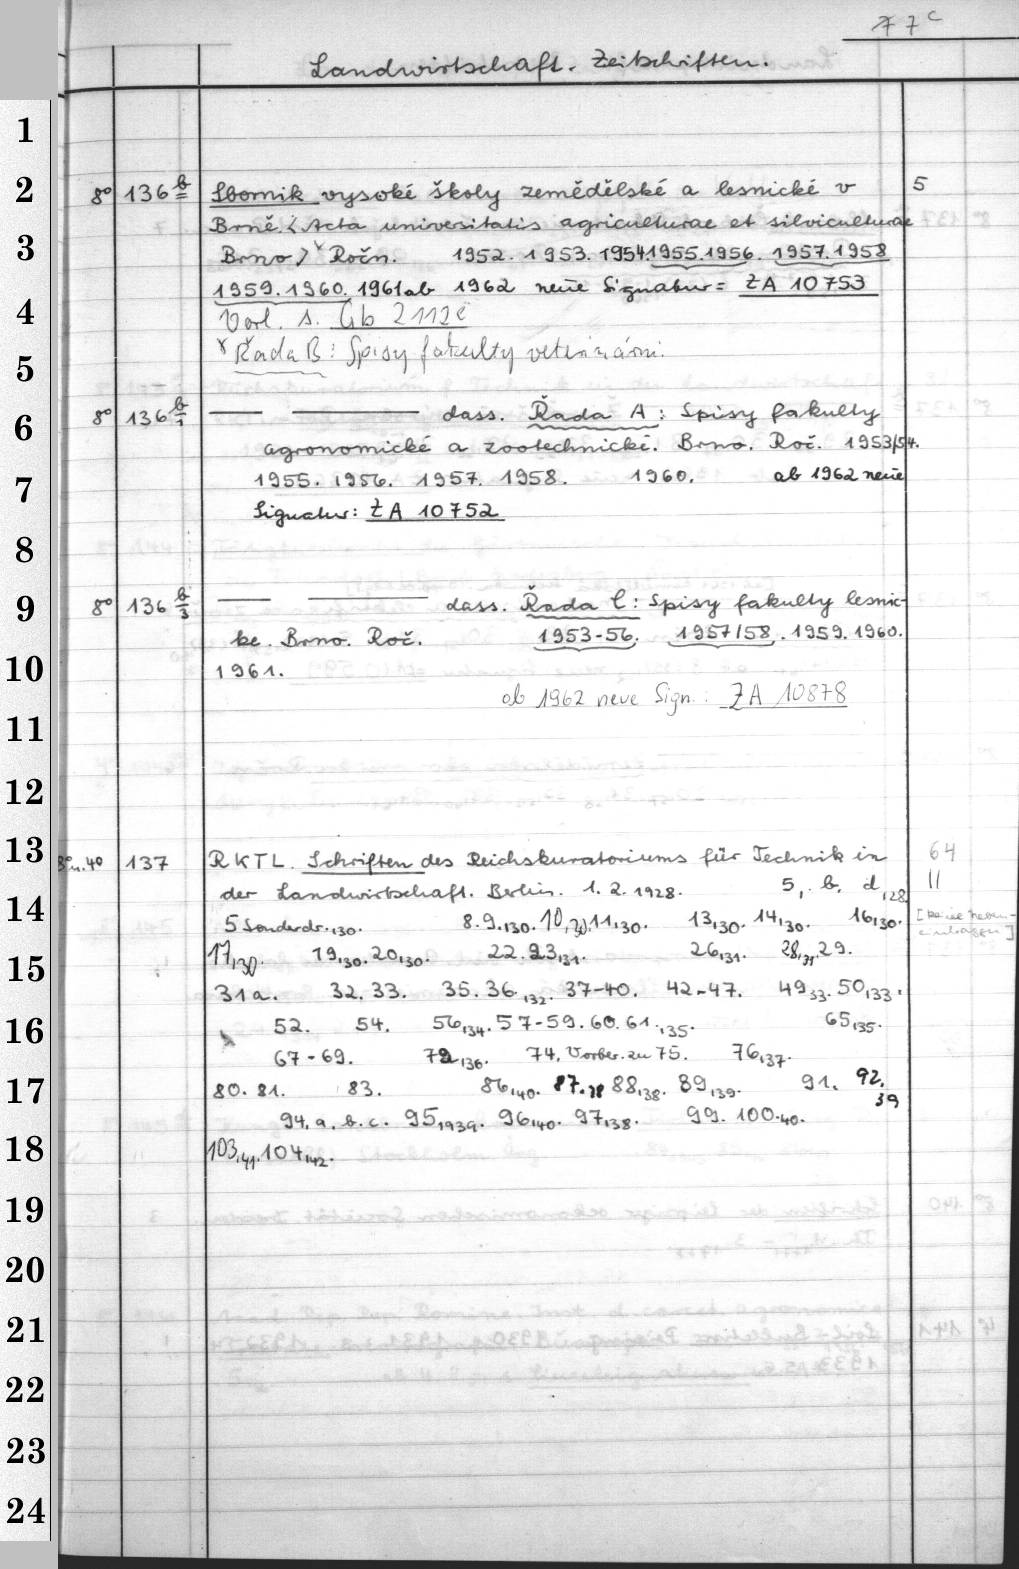 77c
Landwirtschaft. Zeitschriften.
1
2 8° 136 b Sborník vysoké školy zemědělské a lesnické v 5
Brně <Acta universitatis agriculturae et silviculturae
3 Brno> Ročn. 1952. 1953. 1954 1955. 1956. 1957. 1958
1959. 1960. 1961 ab 1962 neue Signatur = ZA 10753
4 Vorl. s. Gb 2112
5 Řada B: Spisy fakulty veterinární.
6 8° 136 b/1 — — dass. Řada A: Spisy fakulty
agronomické a zootechnické. Brno. Roč. 1953/54.
7 1955. 1956. 1957. 1958. 1960. ab 1962 neue
Signatur: ZA 10752
8
9 8° 136 b/3 — — dass. Řada C: Spisy fakulty lesnic-
ke. Brno. Roč. 1953-56. 1957/58. 1959. 1960.
10 1961.
ab 1962 neue Sign.: ZA 10878
11
12
13 8° u. 4° 137 RKTL. Schriften des Reichskuratoriums für Technik in 64
der Landwirtschaft. Berlin. 1. 2. 1928. 5, b, d,28 II
14 5 Sonderdr.,30. 8.9,30. 10,30. 11,30. 13,30. 14,30. 16,30.
15 17,30. 19,30. 20,30. 22. 23,31. 26,31. 28,31. 29.
31a. 32. 33. 35. 36,32. 37-40. 42-47. 49,33. 50,33.
16 52. 54. 56,34. 57-59. 60. 61,35. 65,35.
67-69. 72,36. 74, Vorber. zu 75. 76,37.
17 80. 81. 83. 86,40. 87.,38 88,38. 89,39. 91. 92,39
94, a. b. c. 95,1939. 96,40. 97,38. 99. 100.40.
18 103,41. 104,42.
19
20
21
22
23
24